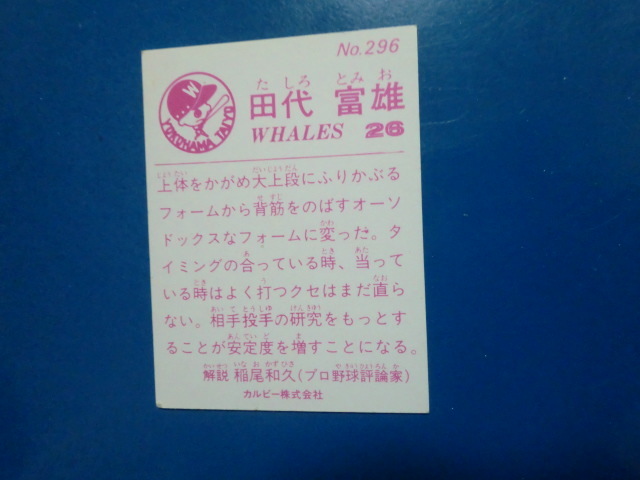 No.296
W
YOKOHAMA TAIYO
た しろ とみ お
田代 富雄
WHALES 26
上体をかがめ大上段にふりかぶる
フォームから背筋をのばすオーソ
ドックスなフォームに変った。タ
イミングの合っている時、当って
いる時はよく打つクセはまだ直ら
ない。相手投手の研究をもっとす
ることが安定度を増すことになる。
解説 稲尾和久(プロ野球評論家)
カルビー株式会社